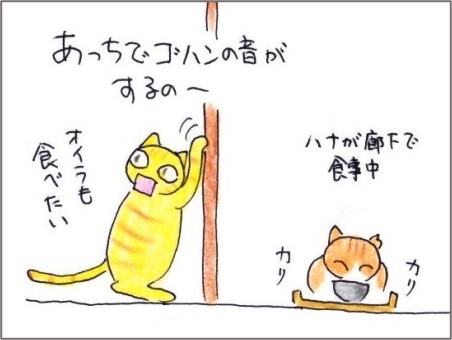 あっちでゴハンの音が
するの〜
オイラも
食べたい
ハナが廊下で
食事中
カリ
カリ